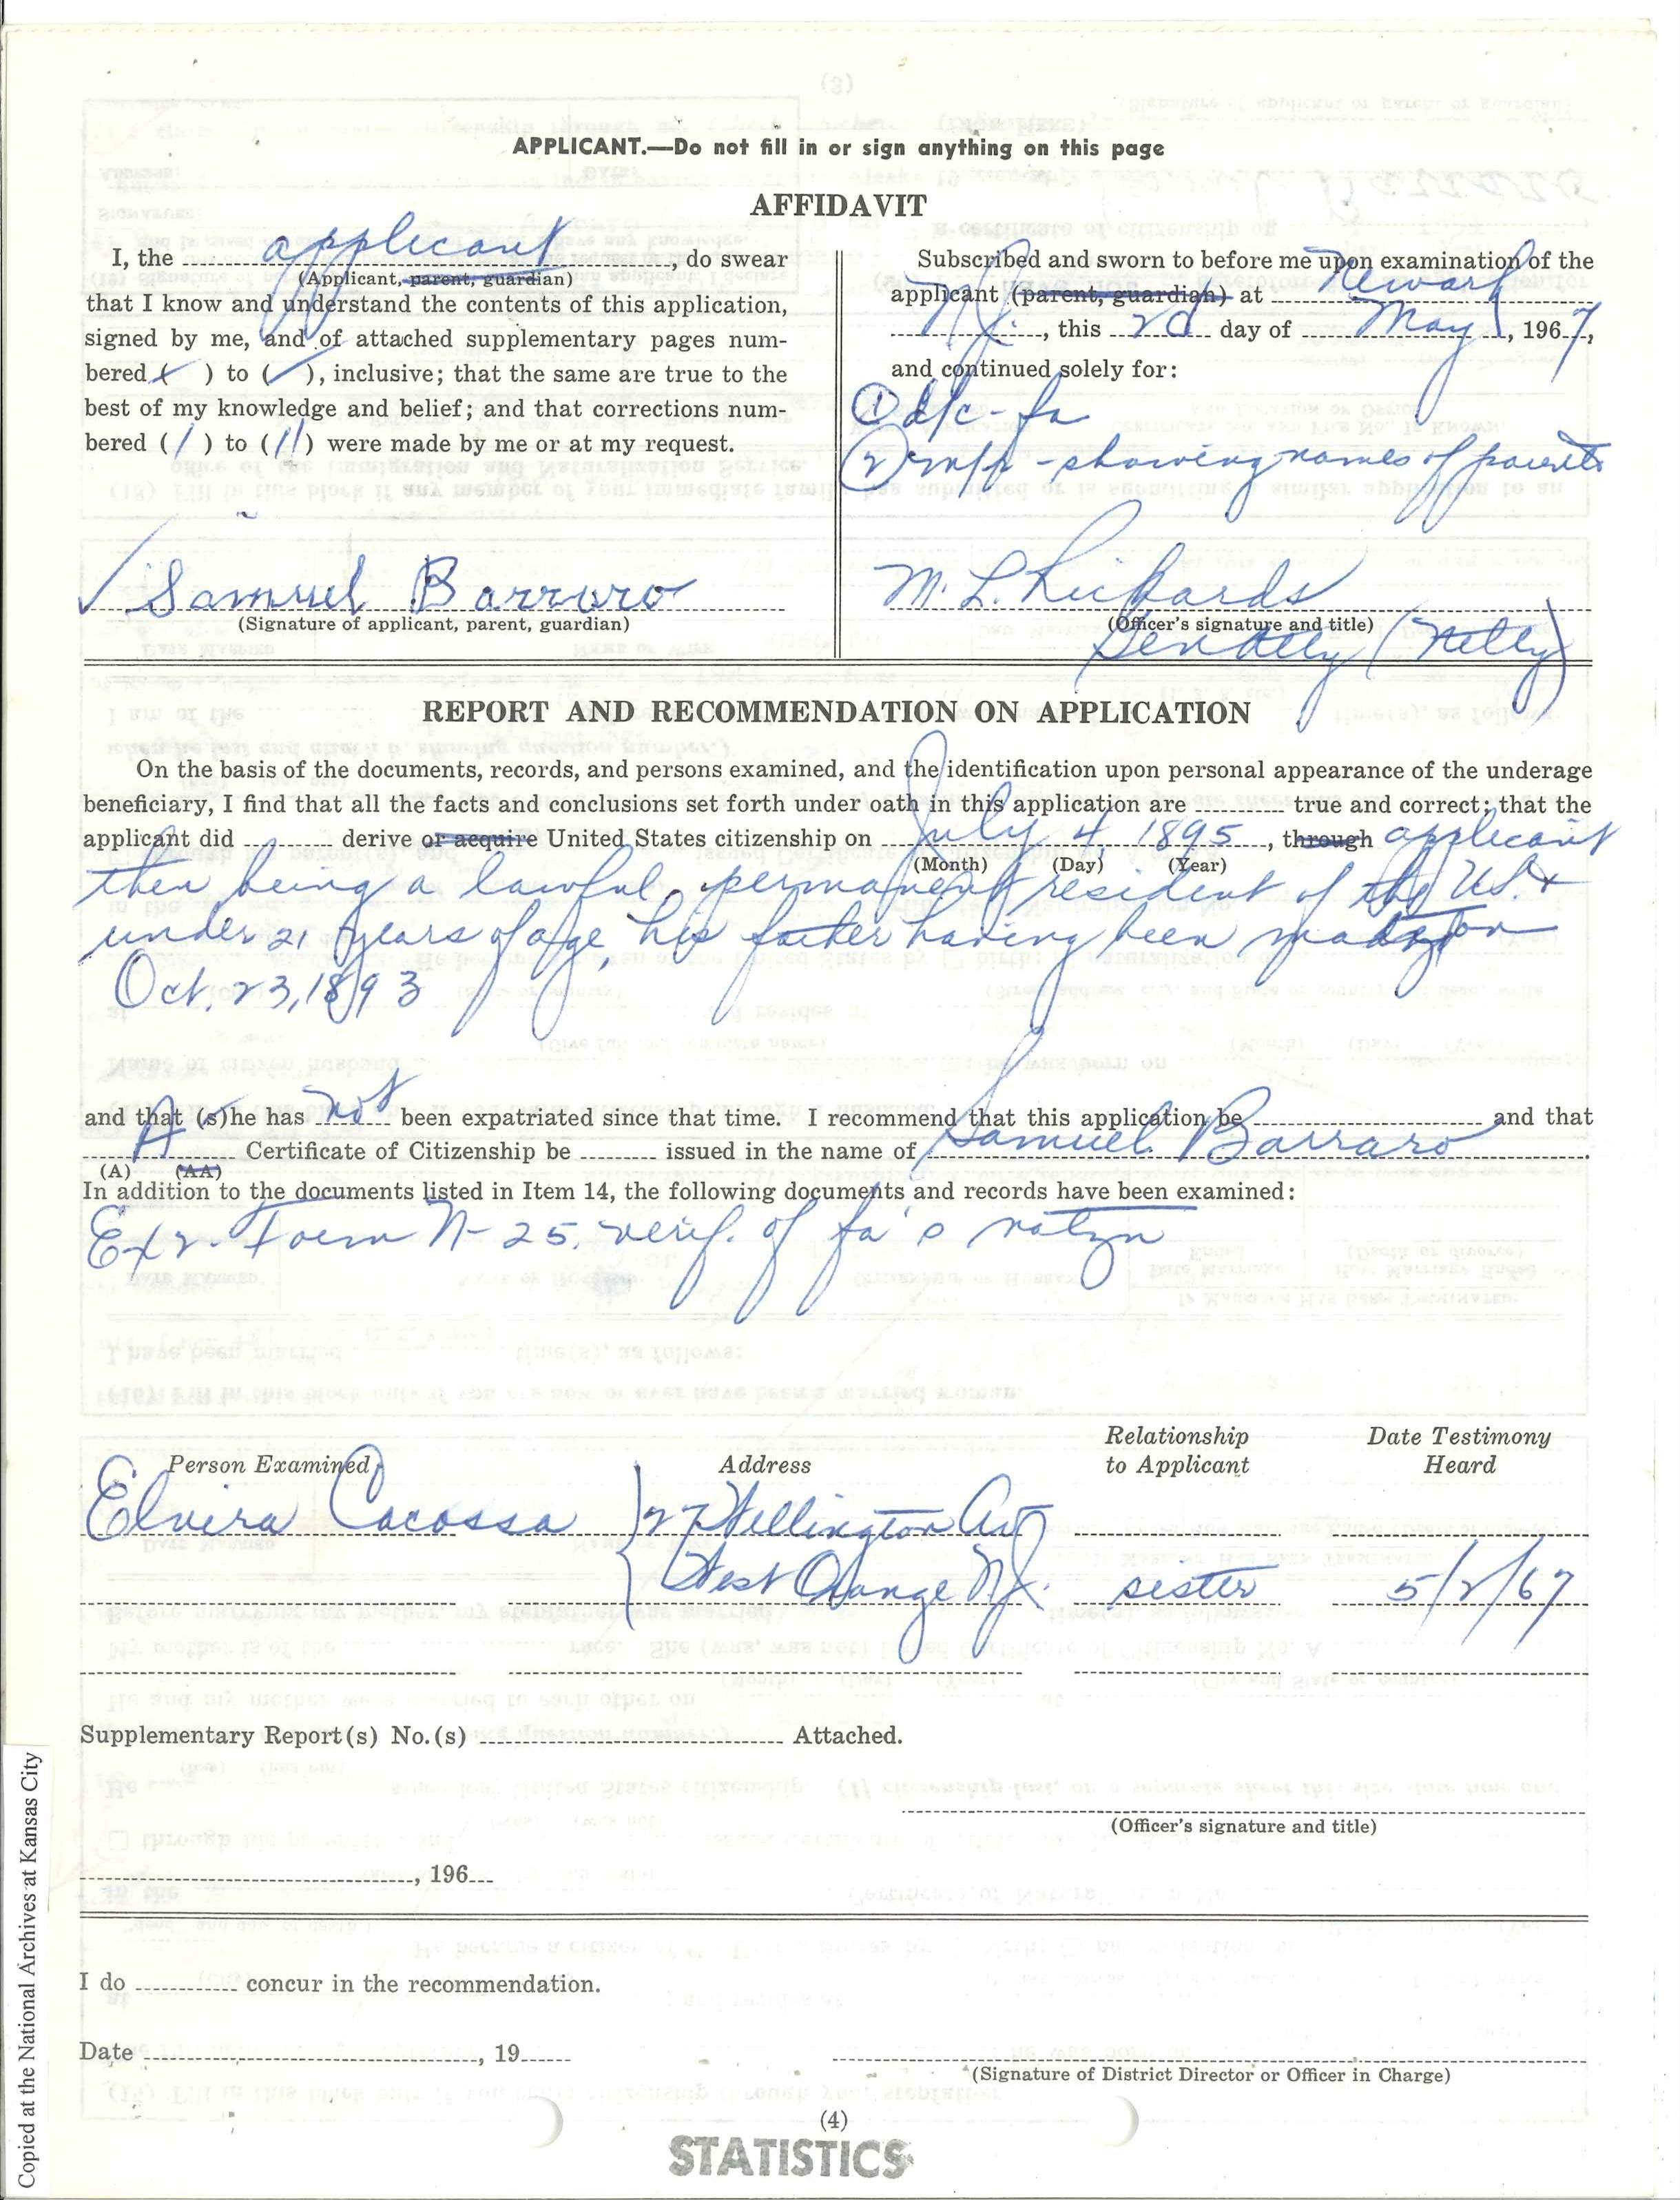 APPLICANT.—Do not fill in or sign anything on this page
AFFIDAVIT
I, the applicant do swear
(Applicant, parent, guardian)
that I know and understand the contents of this application,
signed by me, and of attached supplementary pages num-
bered ( ) to ( ), inclusive; that the same are true to the
best of my knowledge and belief; and that corrections num-
bered ( 1 ) to ( 11 ) were made by me or at my request.
Samuel Barraro
(Signature of applicant, parent, guardian)
Subscribed and sworn to before me upon examination of the
applicant (parent, guardian) at Newark
N.J., this 2d day of May, 1967,
and continued solely for:
① d/c - fa
② m/r - showing names of parents
M. L. Rickards
(Officer's signature and title)
REPORT AND RECOMMENDATION ON APPLICATION
On the basis of the documents, records, and persons examined, and the identification upon personal appearance of the underage
beneficiary, I find that all the facts and conclusions set forth under oath in this application are true and correct; that the
applicant did derive or acquire United States citizenship on July 4, 1895, through applicant
(Month) (Day) (Year)
then being a lawful permanent resident of the U.S. &
under 21 years of age, his father having been on
Oct. 23, 1893
and that (s)he has not been expatriated since that time. I recommend that this application be and that
A Certificate of Citizenship be issued in the name of Samuel Barraro
(A) (AA)
In addition to the documents listed in Item 14, the following documents and records have been examined:
Ex 2. Form N-25. verif. of fa's natzn
Person Examined
Address
Relationship
to Applicant
Date Testimony
Heard
Elvira Cocossa
27 Wellington Av
West Orange N.J. sister 5/2/67
Supplementary Report(s) No.(s) Attached.
(Officer's signature and title)
, 196
I do concur in the recommendation.
Date , 19
(Signature of District Director or Officer in Charge)
(4)
STATISTICS
Copied at the National Archives at Kansas City